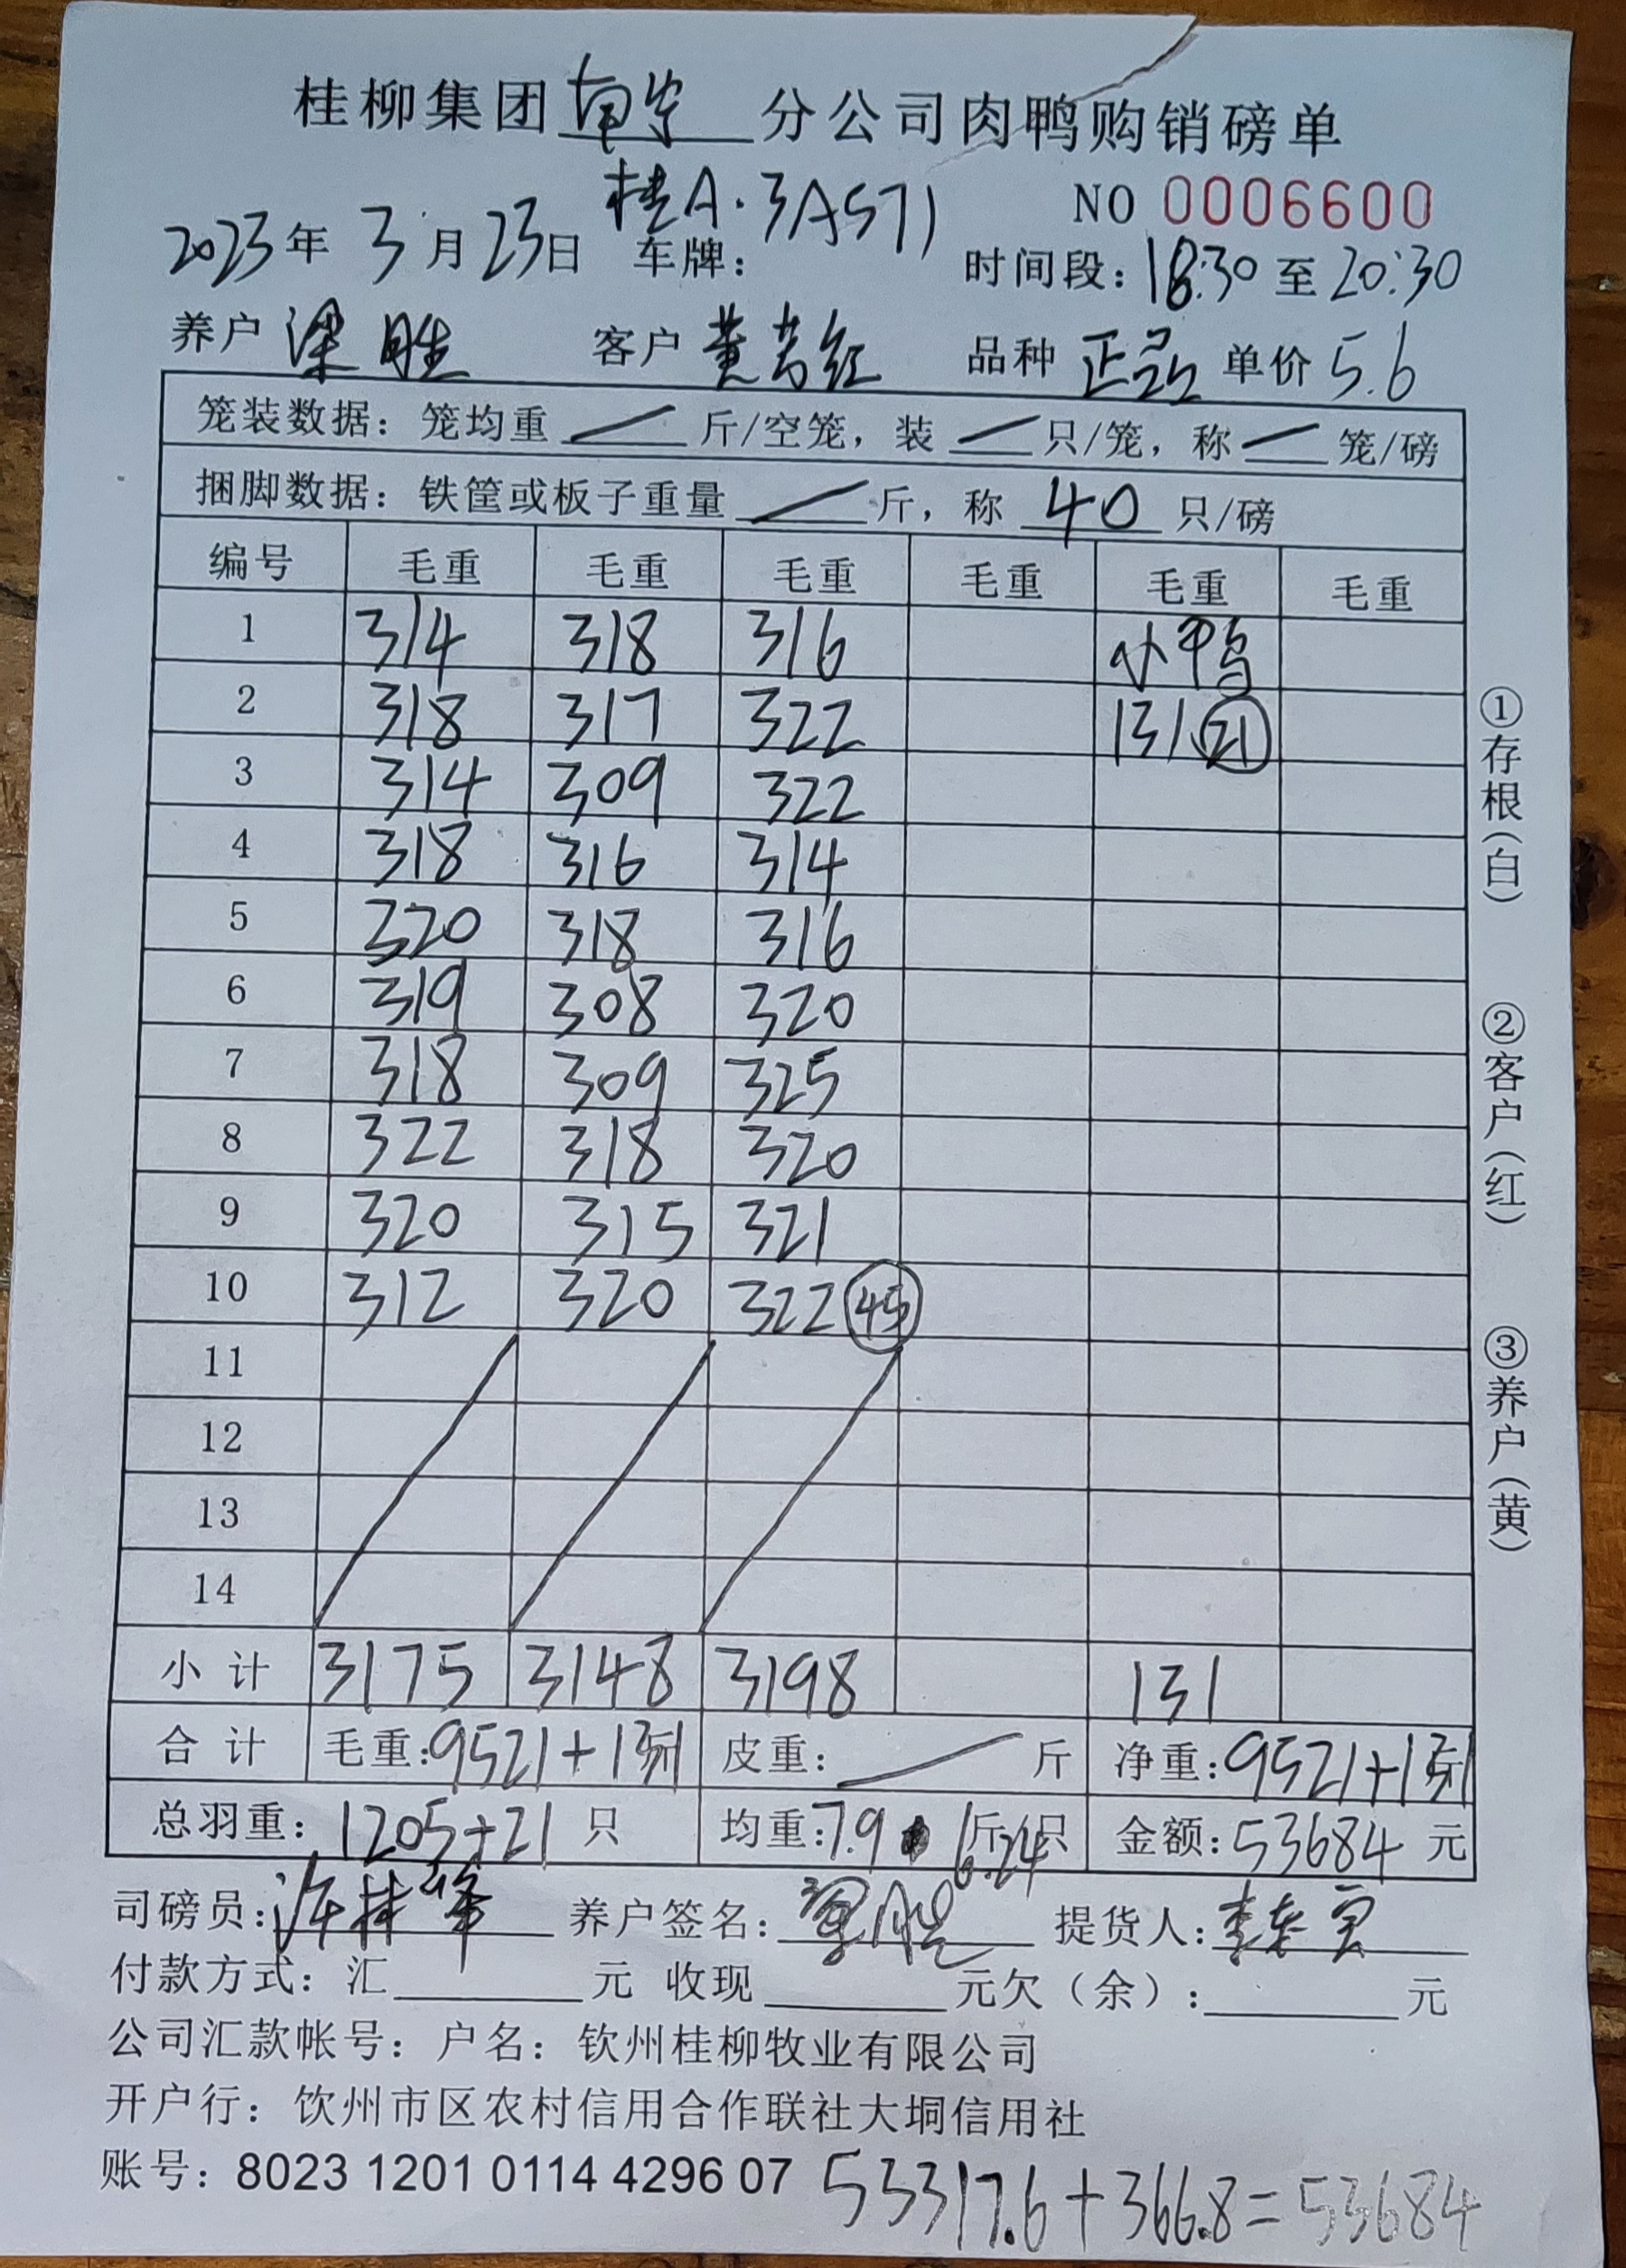 桂柳集团南宁分公司肉鸭购销磅单
桂A·3A571
NO 0006600
2023年3月23日 车牌： 时间段：18:30至20:30
养户 梁胜 客户 黄芳红 品种 正品 单价 5.6
笼装数据：笼均重 / 斤/空笼，装 / 只/笼，称 / 笼/磅
捆脚数据：铁筐或板子重量 / 斤，称 40 只/磅
编号 毛重 毛重 毛重 毛重 毛重 毛重
1 314 318 316 小鸭
2 318 317 322 131 21
3 314 309 322
4 318 316 314
5 320 318 316
6 319 308 320
7 318 309 325
8 322 318 320
9 320 315 321
10 312 320 322 45
11
12
13
14
小计 3175 3148 3198 131
合计 毛重：9521+131斤 皮重： / 斤 净重：9521+131斤
总羽重：1205+21只 均重：7.9 6.24斤/只 金额：53684元
司磅员：许桂峰 养户签名：梁胜 提货人：
付款方式：汇 元 收现 元欠（余）： 元
公司汇款帐号：户名：钦州桂柳牧业有限公司
开户行：饮州市区农村信用合作联社大垌信用社
账号：8023 1201 0114 4296 07 53317.6+366.8=53684
①存根（白）
②客户（红）
③养户（黄）